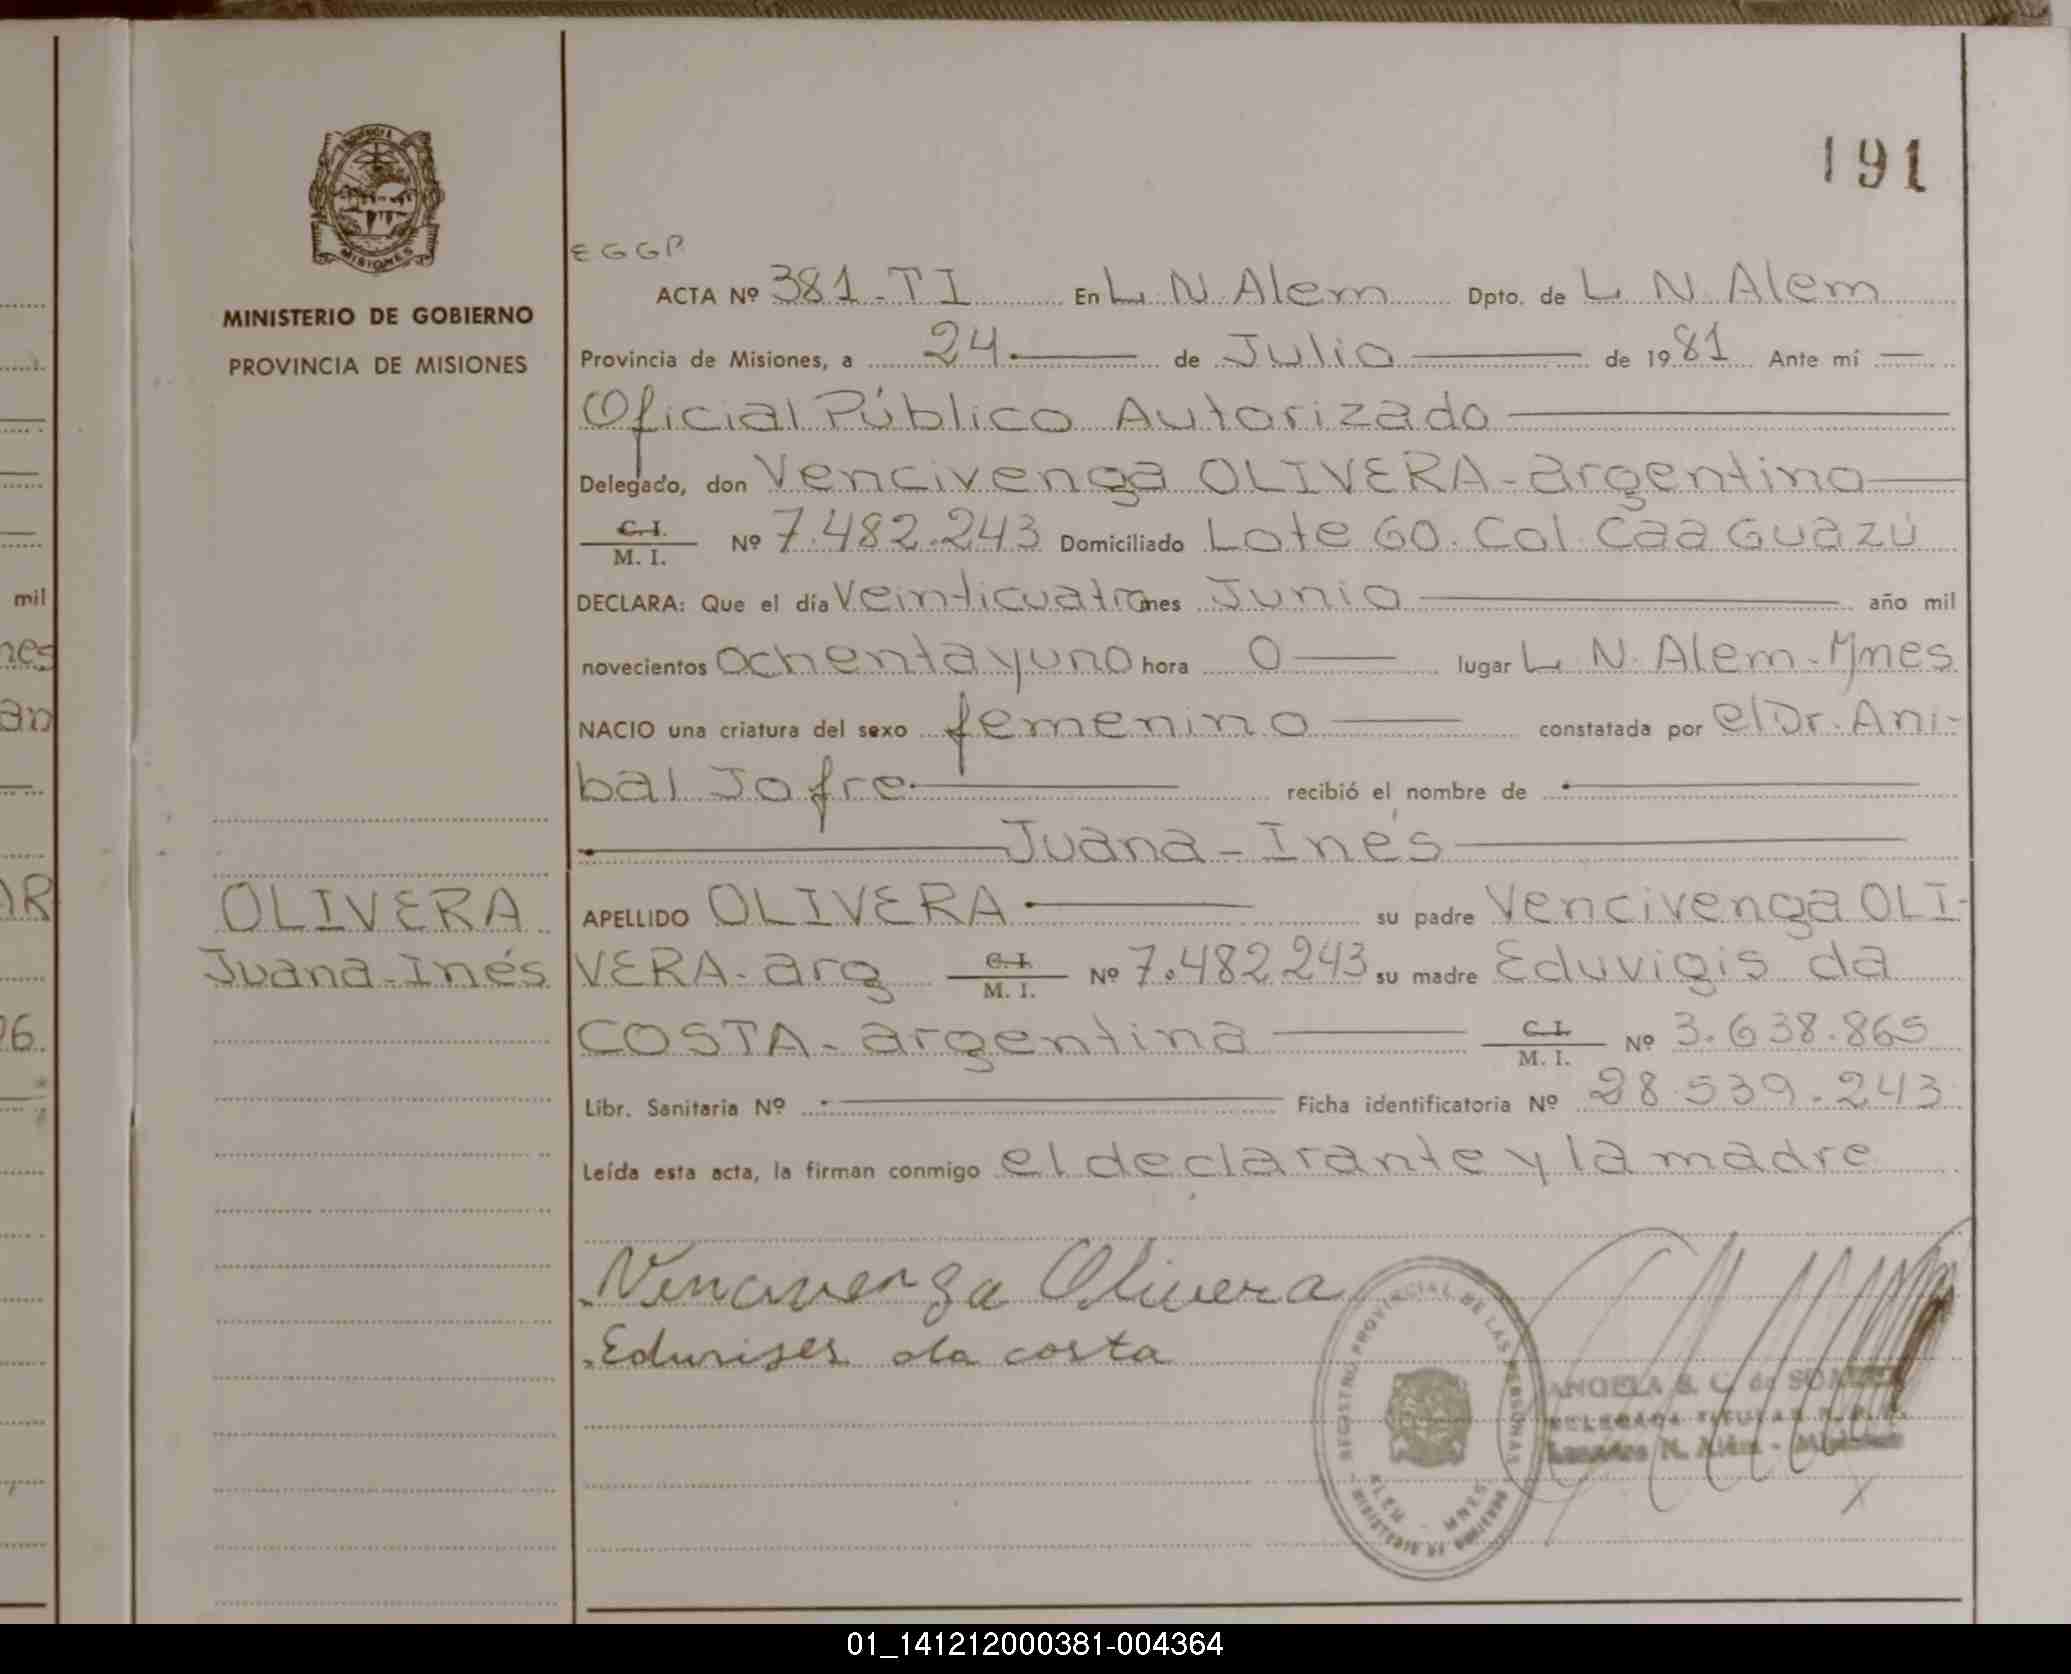 191
MISIONES
MINISTERIO DE GOBIERNO
PROVINCIA DE MISIONES
OLIVERA
Juana-Inés
EGGP
ACTA Nº 381-TI En L. N. Alem Dpto. de L. N. Alem
Provincia de Misiones, a 24 de Julio de 1981 Ante mí
Oficial Público Autorizado
Delegado, don Vencivenga OLIVERA-argentino
C. I. M. I. Nº 7.482.243 Domiciliado Lote 60. Col. Caa Guazú
DECLARA: Que el día Veinticuatro mes Junio año mil
novecientos ochenta y uno hora 0 lugar L. N. Alem-Mnes
NACIO una criatura del sexo femenino constatada por el Dr. Ani-
bal Jofre recibió el nombre de
Juana-Inés
APELLIDO OLIVERA su padre Vencivenga OLI-
VERA-arg C. I. M. I. Nº 7.482.243 su madre Eduvigis da
COSTA-argentina C. I. M. I. Nº 3.638.865
Libr. Sanitaria Nº Ficha identificatoria Nº 28.539.243
Leída esta acta, la firman conmigo el declarante y la madre
Vencivenga Olivera
Eduviges da costa
REGISTRO PROVINCIAL DE LAS PERSONAS
ALEM - MNES
MINISTERIO DE GOBIERNO
ANGELA S. C. de
DELEGADA TITULAR R. P.
Leandro N. Alem - Misiones
mil
nes
an
AR
96
01_141212000381-004364